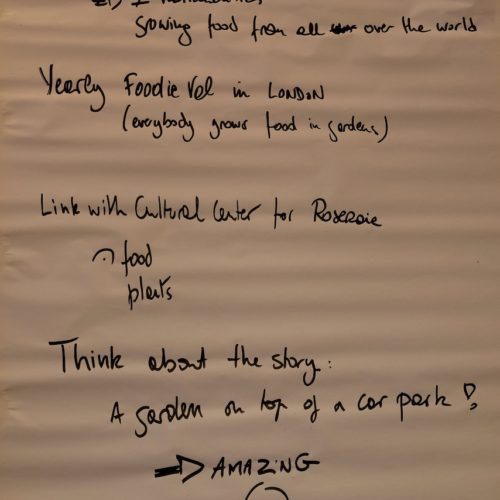 => I
Growing food from all over the world
Yearly Foodie Val in LONDON
(everybody grows food in gardens)
Link with Cultural Center for Roseraie
food
plants
Think about the story:
A garden on top of a car park !
=> AMAZING